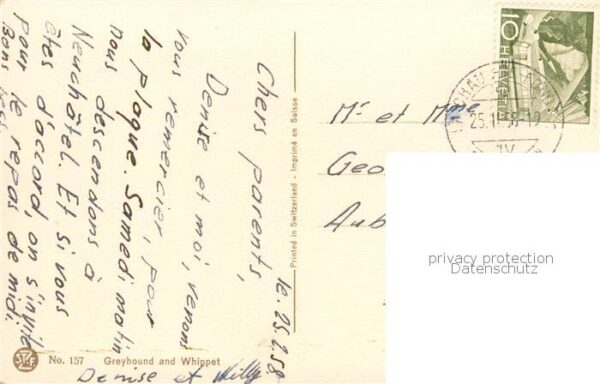 le 25.2.58
Chers parents,
Denise et moi, venons
vous remercier, pour
la plaque. Samedi matin
nous descendons à
Neuchâtel. Et si vous
êtes d'accord, on s'invite
pour le repas de midi.
Bons
Denise et Willy
No. 157 Greyhound and Whippet
Printed in Switzerland - Imprimé en Suisse
Mr et Mme
Geo
Aub
10
HELVETIA
privacy protection
Datenschutz